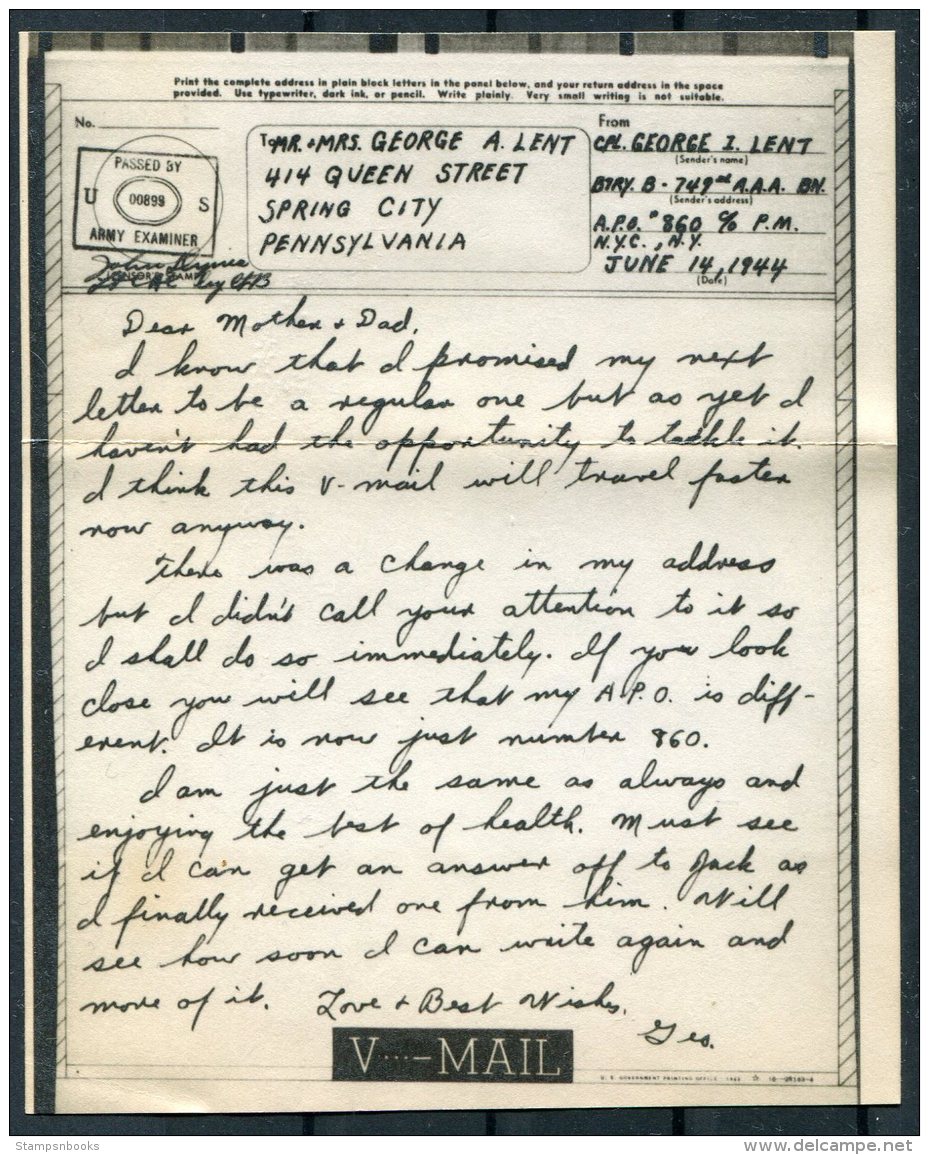 Print the complete address in plain block letters in the panel below, and your return address in the space
provided. Use typewriter, dark ink, or pencil. Write plainly. Very small writing is not suitable.
No.
PASSED BY
U 00899 S
ARMY EXAMINER
(CENSOR'S STAMP)
To MR. & MRS. GEORGE A. LENT
414 QUEEN STREET
SPRING CITY
PENNSYLVANIA
From
CPL. GEORGE I. LENT
(Sender's name)
BTRY. B - 749th A.A.A. BN.
(Sender's address)
A.P.O. # 860 c/o P.M.
N.Y.C., N.Y.
JUNE 14, 1944
(Date)
Dear Mother & Dad,
I know that I promised my next
letter to be a regular one but as yet I
haven't had the opportunity to tackle it.
I think this V-mail will travel faster
now anyway.
There was a change in my address
but I didn't call your attention to it so
I shall do so immediately. If you look
close you will see that my A.P.O. is diff-
erent. It is now just number 860.
I am just the same as always and
enjoying the best of health. Must see
if I can get an answer off to Jack as
I finally received one from him. Will
see how soon I can write again and
more of it. Love & Best Wishes,
Geo.
V···—MAIL
U. S. GOVERNMENT PRINTING OFFICE : 1943
Stampsnbooks
www.delcampe.net